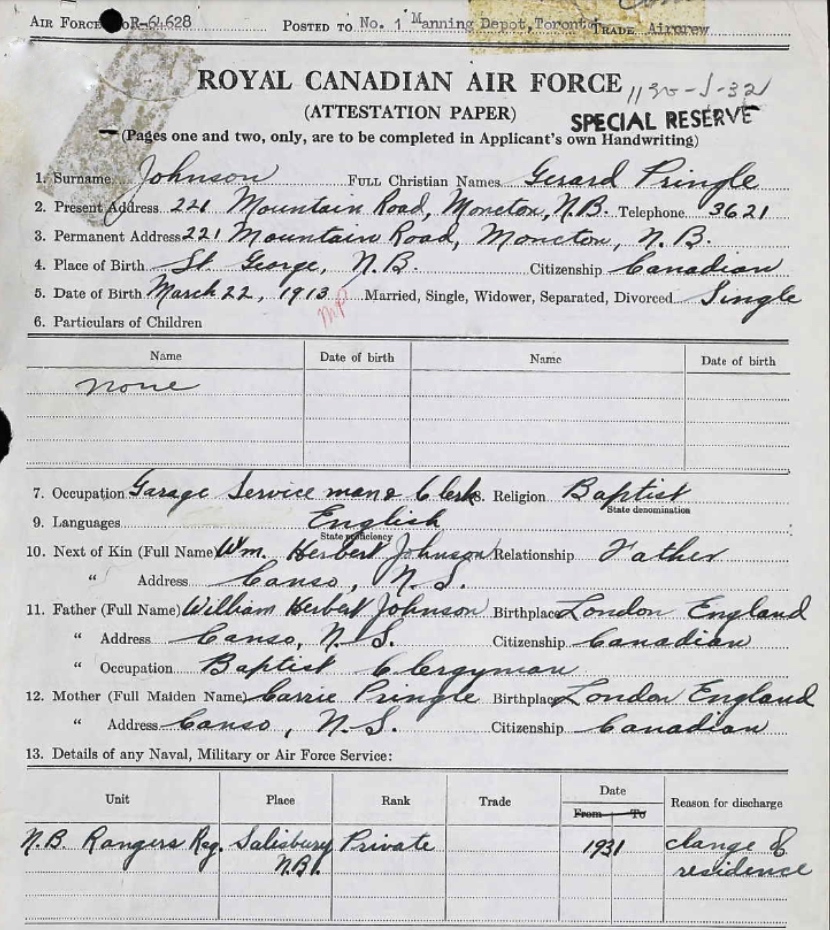 AIR FORCE No R-64628 POSTED TO No. 1 Manning Depot, Toronto TRADE Aircrew
ROYAL CANADIAN AIR FORCE 1130-J-32
(ATTESTATION PAPER) SPECIAL RESERVE
(Pages one and two, only, are to be completed in Applicant's own Handwriting)
1. Surname Johnson FULL Christian Names Gerard Pringle
2. Present Address 221 Mountain Road, Moncton, N.B. Telephone 3621
3. Permanent Address 221 Mountain Road, Moncton, N.B.
4. Place of Birth St. George, N.B. Citizenship Canadian
5. Date of Birth March 22, 1913 Married, Single, Widower, Separated, Divorced Single
6. Particulars of Children
Name Date of birth Name Date of birth
none
7. Occupation Garage Service man & Clerk 8. Religion Baptist
State denomination
9. Languages English
State proficiency
10. Next of Kin (Full Name) Wm. Herbert Johnson Relationship Father
" Address Canso, N.S.
11. Father (Full Name) William Herbert Johnson Birthplace London England
" Address Canso, N.S. Citizenship Canadian
" Occupation Baptist Clergyman
12. Mother (Full Maiden Name) Carrie Pringle Birthplace London England
" Address Canso, N.S. Citizenship Canadian
13. Details of any Naval, Military or Air Force Service:
Unit Place Rank Trade Date Reason for discharge
From To
N.B. Rangers Reg. Salisbury Private 1931 change of
N.B. residence